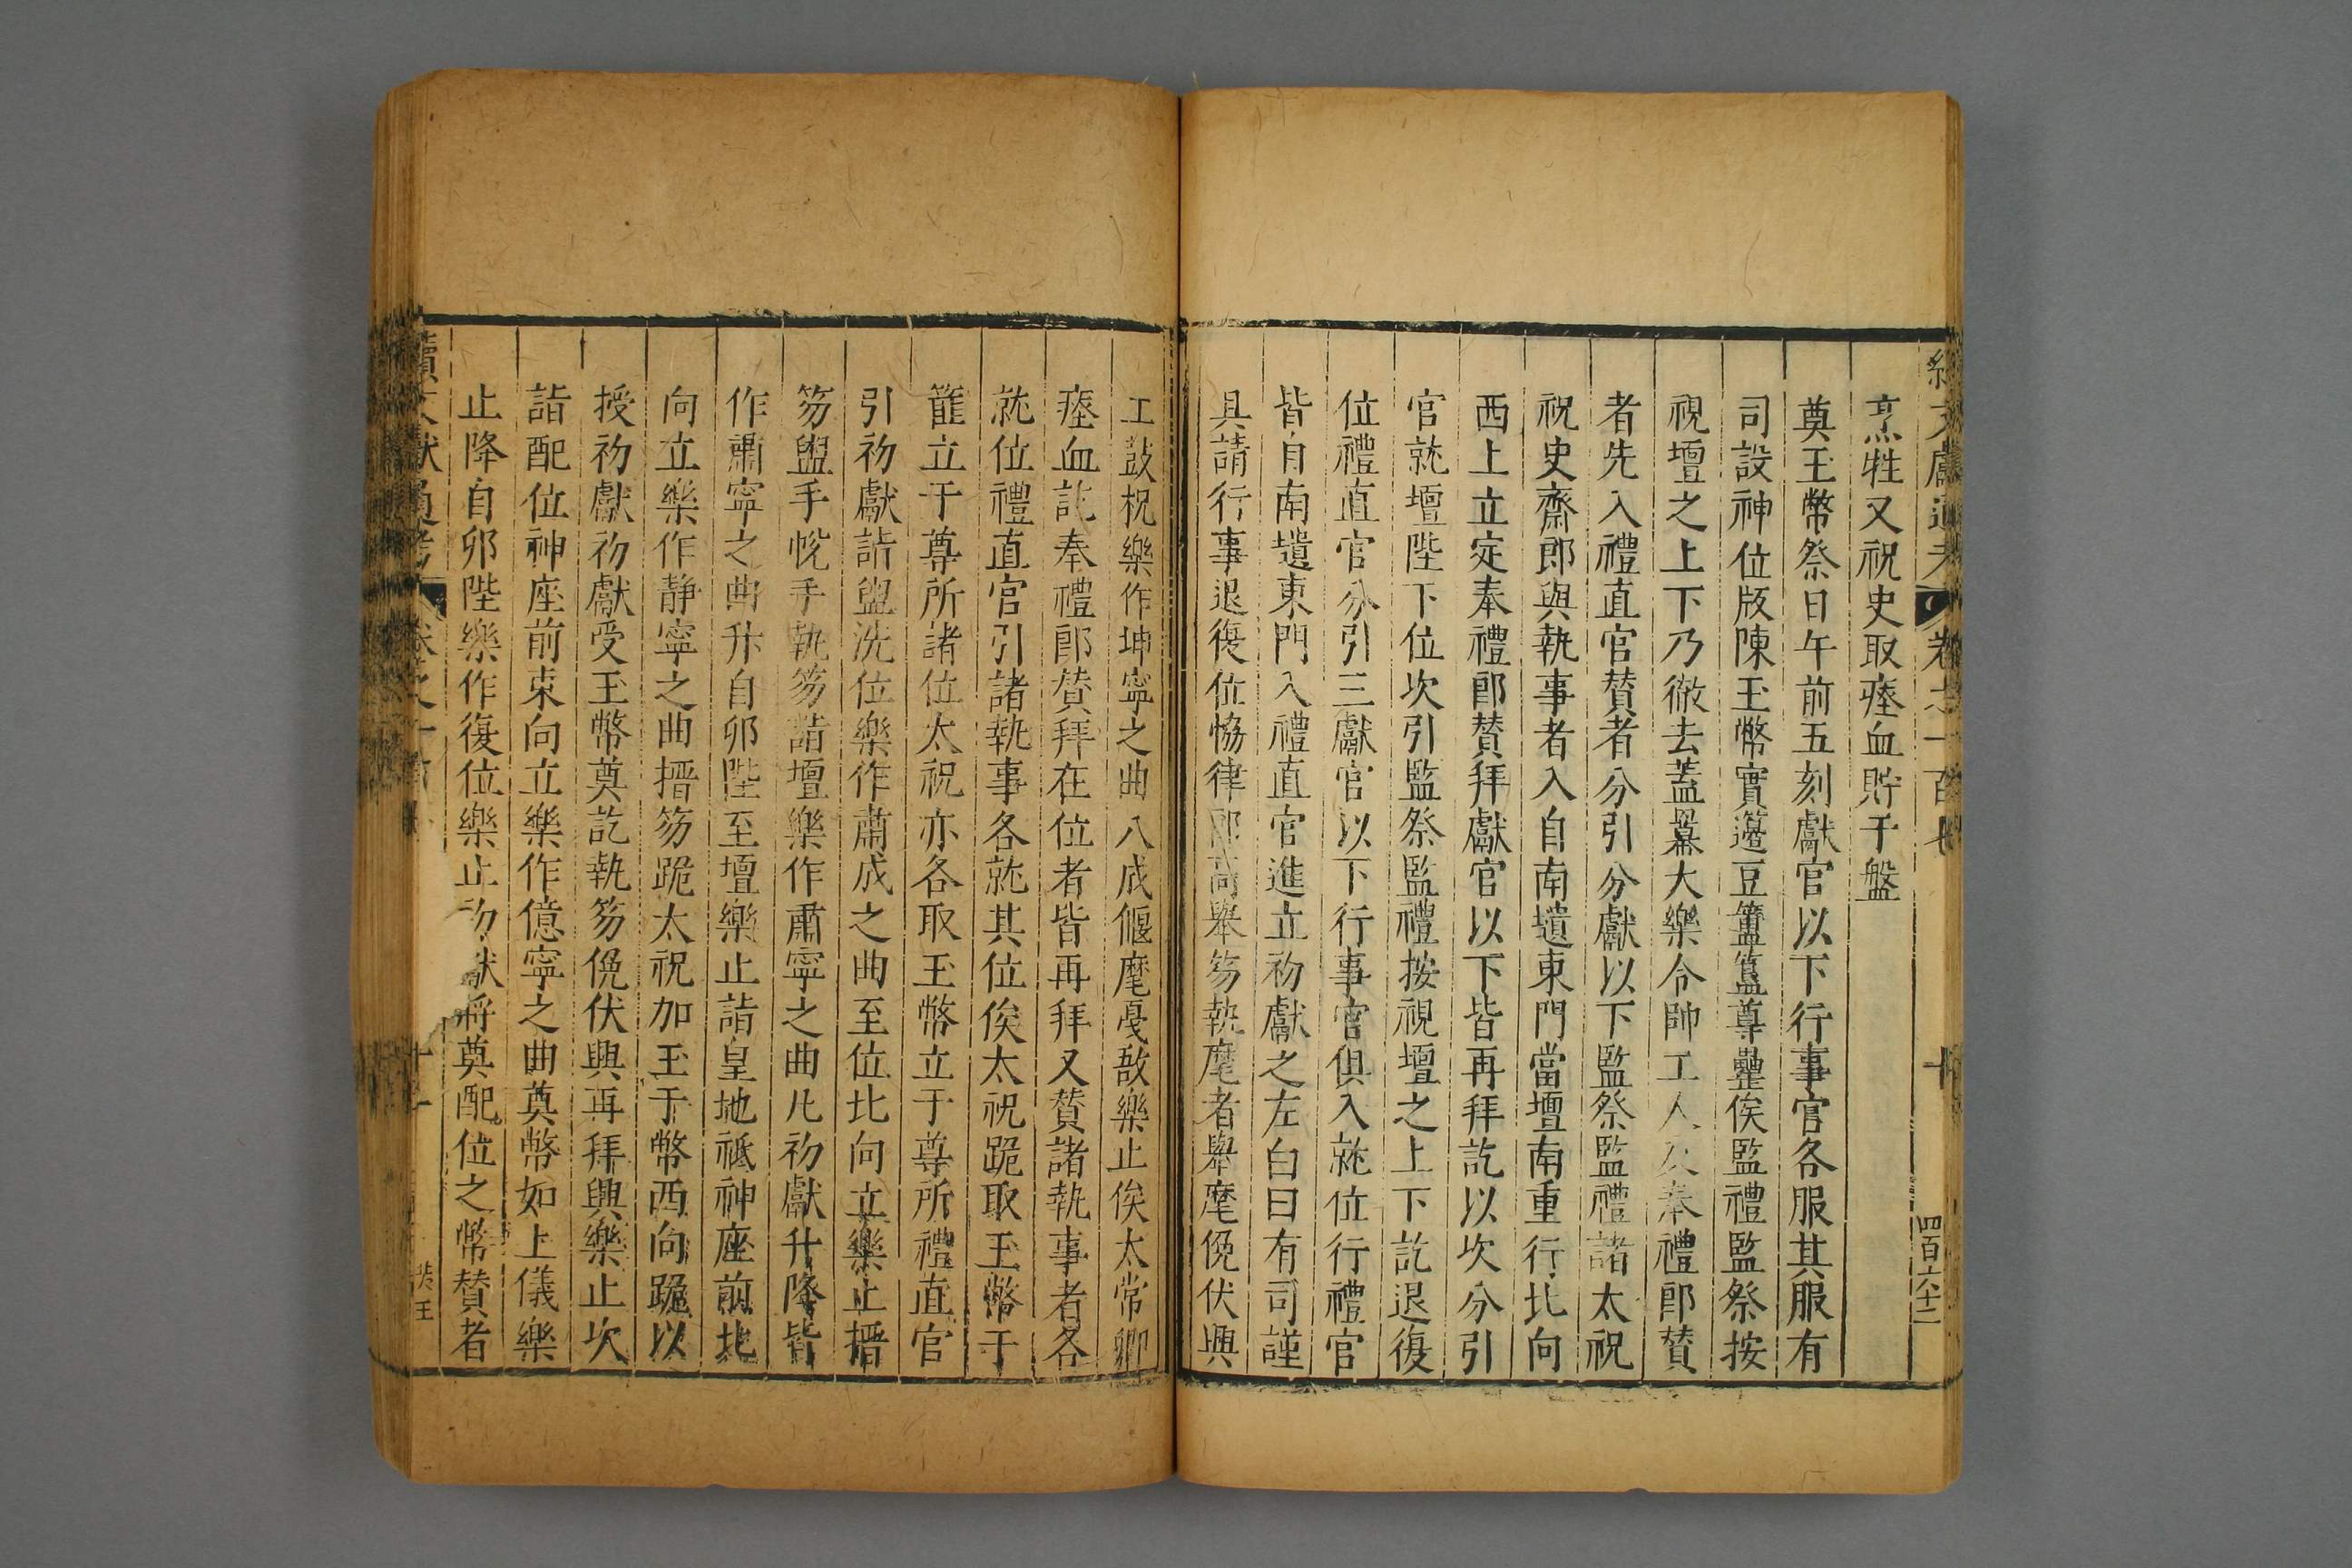 烹牲又祝史取瘞血貯于盤
奠玉幣祭日午前五刻獻官以下行事官各服其服有
司設神位版陳玉幣實籩豆簠簋尊罍俟監禮監祭按
視壇之上下乃徹去蓋冪大樂令帥工人及奉禮郎賛
者先入禮直官賛者分引分獻以下監祭監禮諸太祝
祝史齋郎與執事者入自南壝東門當壇南重行北向
西上立定奉禮郎賛拜獻官以下皆再拜訖以次分引
官就壇陛下位次引監祭監禮按視壇之上下訖退復
位禮直官分引三獻官以下行事官俱入就位行禮官
皆自南壝東門入禮直官進立初獻之左白曰有司謹
具請行事退復位恊律郎高舉笏執麾者舉麾俛伏興
工鼓柷樂作坤寧之曲八成偃麾戛敔樂止俟太常卿
瘞血訖奉禮郎賛拜在位者皆再拜又賛諸執事者各
就位禮直官引諸執事各就其位俟太祝跪取玉幣于
篚立于尊所諸位太祝亦各取玉幣立于尊所禮直官
引初獻詣盥洗位樂作肅成之曲至位北向立樂止搢
笏盥手帨手執笏詣壇樂作肅寧之曲凡初獻升降皆
作肅寧之曲升自卯陛至壇樂止詣皇地祗神座前北
向立樂作静寧之曲搢笏跪太祝加玉于幣西向跪以
授初獻初獻受玉幣奠訖執笏俛伏興再拜興樂止次
詣配位神座前東向立樂作億寧之曲奠幣如上儀樂
止降自卯陛樂作復位樂止初獻將奠配位之幣賛者
續文獻通考
十一
四百六十二